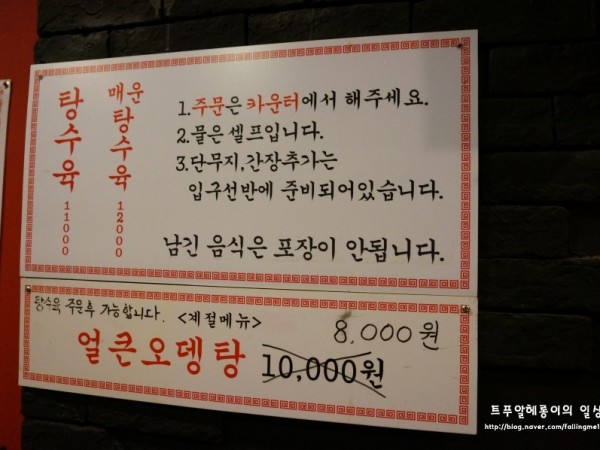 탕수육 11000
매운 탕수육 12000
1.주문은 카운터에서 해주세요.
2.물은 셀프입니다.
3.단무지,간장추가는
입구선반에 준비되어있습니다.
남긴 음식은 포장이 안됩니다.
탕수육 주문후 가능합니다.
<계절메뉴>
8,000원
얼큰오뎅탕 10,000원
트푸알헤롱이의 일상
http://blog.naver.com/fallingme1